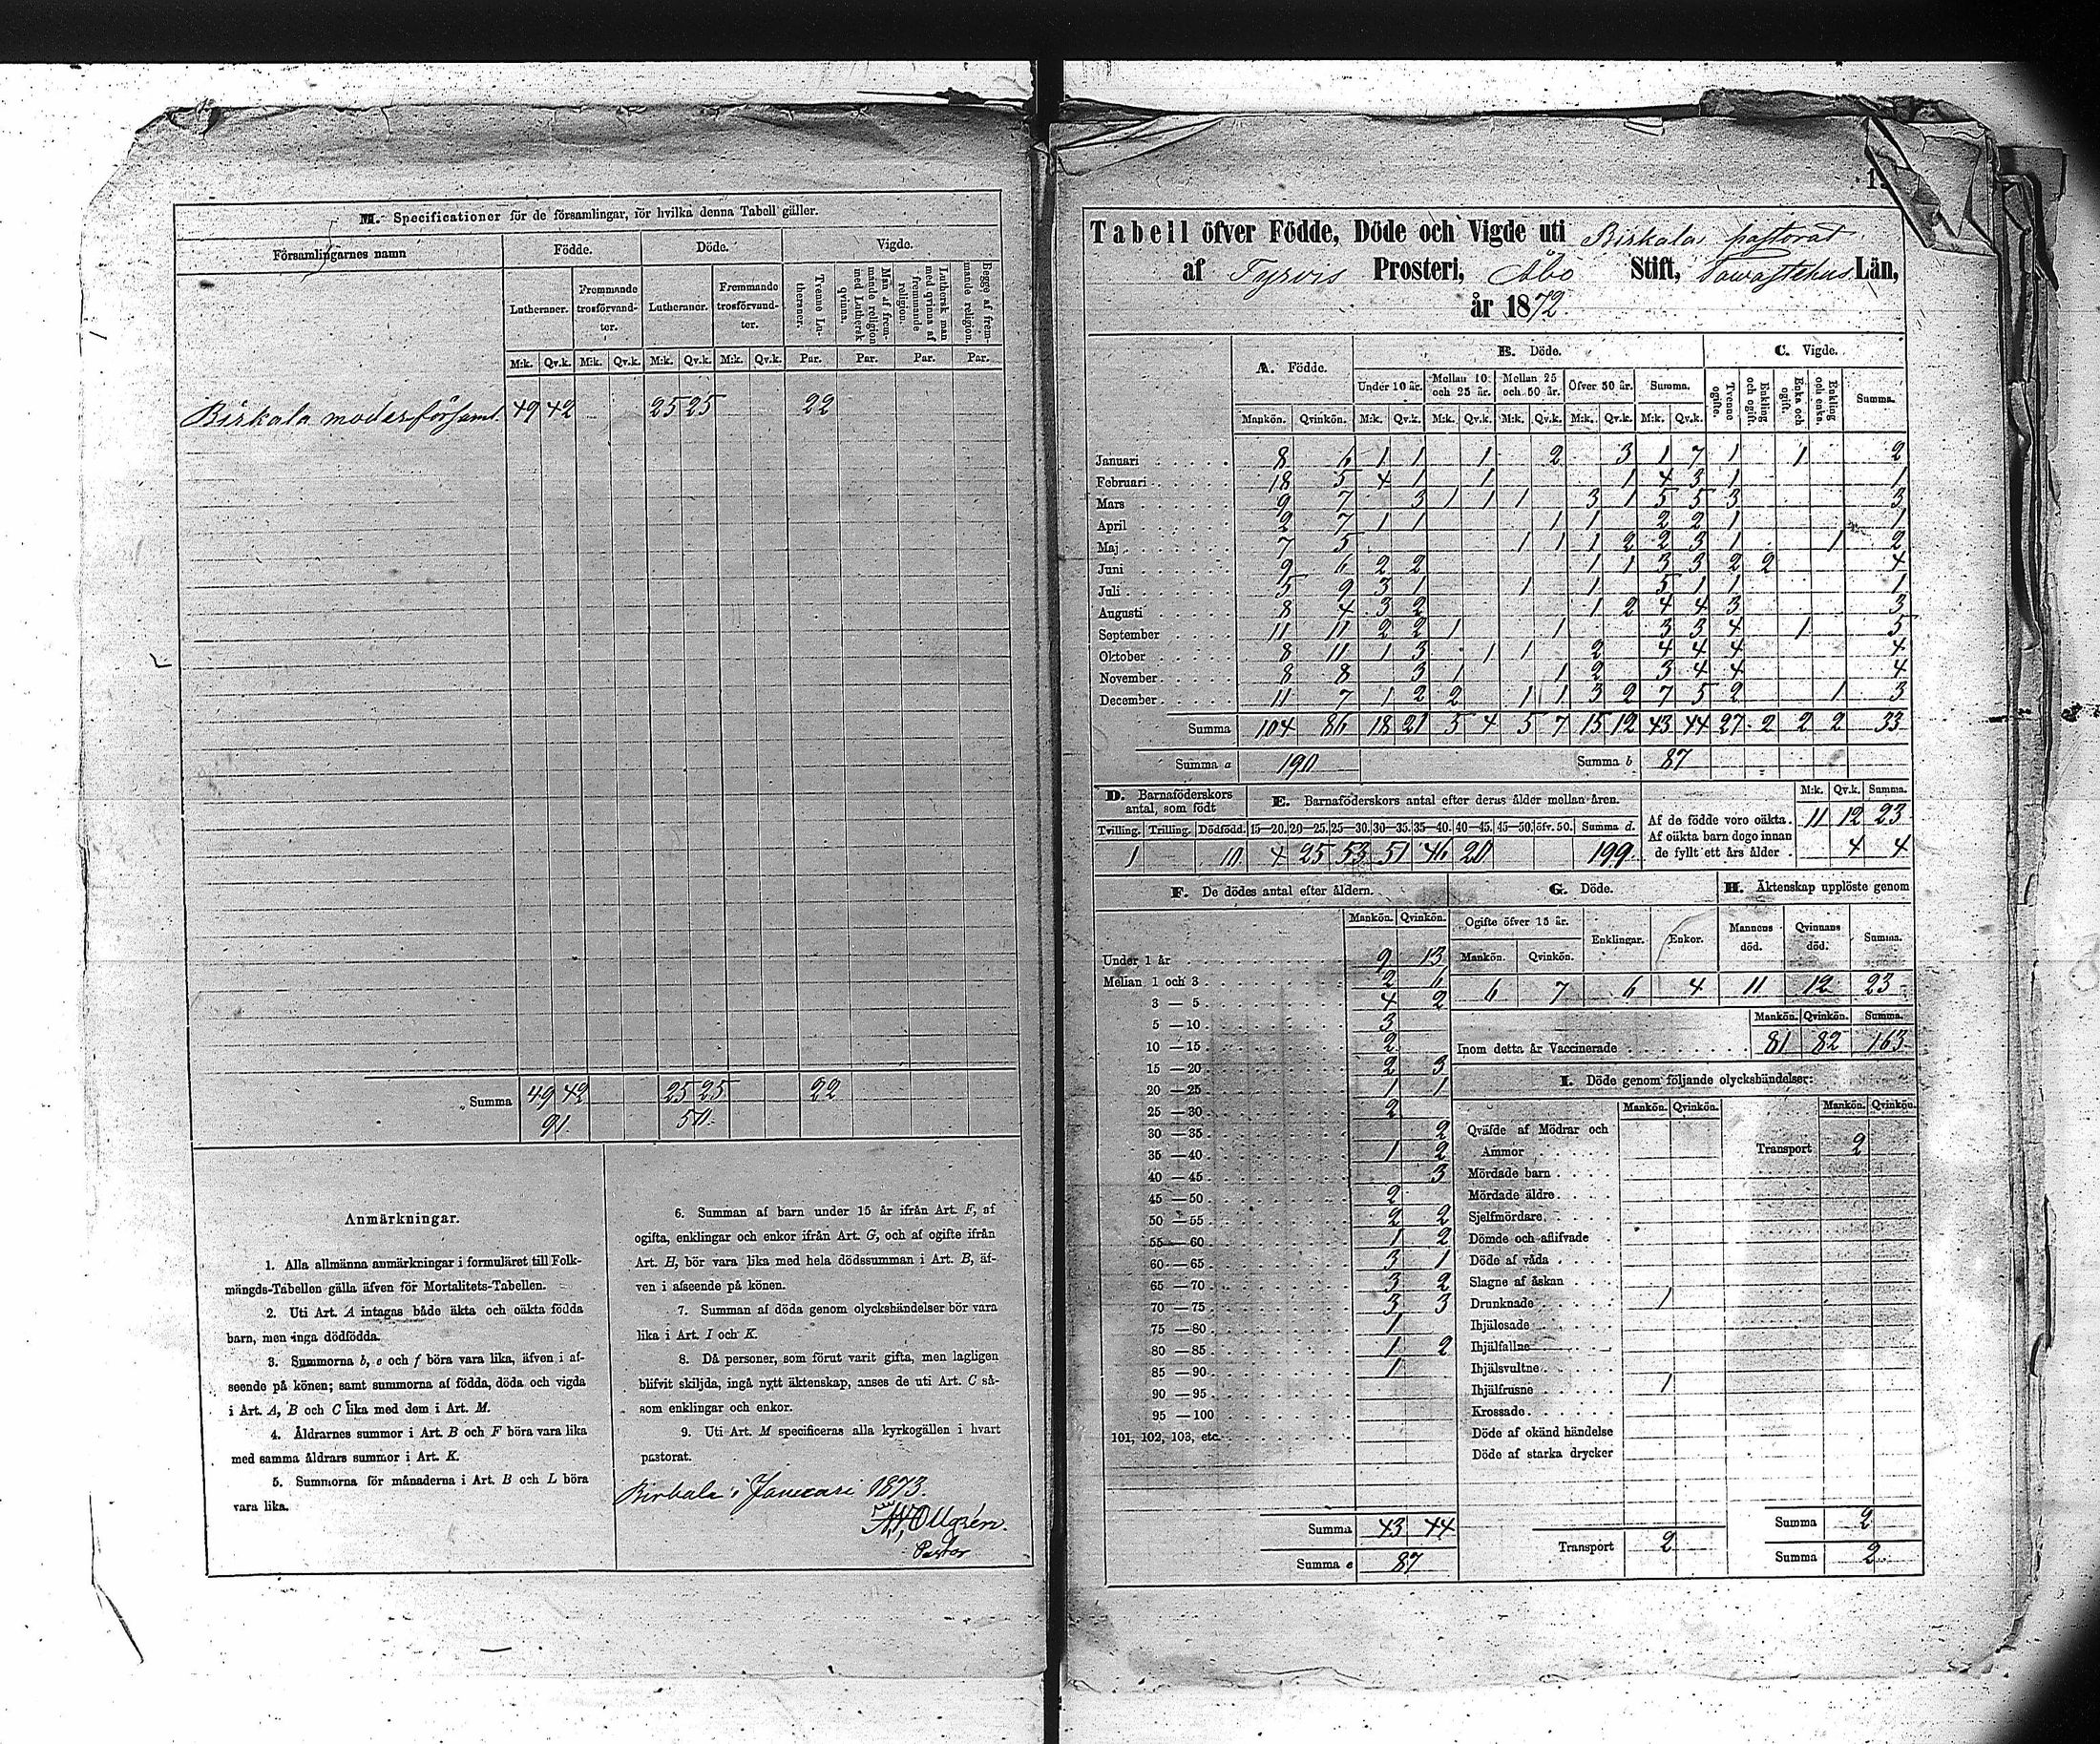 M. Specificationer för de församlingar, för hvilka denna Tabell gäller.
Församlingarnes namn Födde. Döde. Vigde.
Lutheraner. Fremmande trosförvandter. Lutheraner. Fremmande trosförvandter. Trenne Lutheraner. Man af fremmande religion med Luthersk qvinna. Luthersk man med qvinna af fremmande religion. Begge af fremmande religion.
M:k. Qv.k. M:k. Qv.k. M:k. Qv.k. M:k. Qv.k. Par. Par. Par. Par.
Birkala moderförsaml. 49 42 25 25 22
Summa 49 42 25 25 22
91 50
Anmärkningar.
1. Alla allmänna anmärkningar i formuläret till Folk-
mängds-Tabellen gälla äfven för Mortalitets-Tabellen.
2. Uti Art. A intagas både äkta och oäkta födda
barn, men inga dödfödda.
3. Summorna b, e och f böra vara lika, äfven i af-
seende på könen; samt summorna af födda, döda och vigda
i Art. A, B och C lika med dem i Art. M.
4. Åldrarnes summor i Art. B och F böra vara lika
med samma åldrars summor i Art. K.
5. Summorna för månaderna i Art. B och L böra
vara lika.
6. Summan af barn under 15 år ifrån Art. F, af
ogifta, enklingar och enkor ifrån Art. G, och af ogifte ifrån
Art. H, bör vara lika med hela dödssumman i Art. B, äf-
ven i afseende på könen.
7. Summan af döda genom olyckshändelser bör vara
lika i Art. I och K.
8. Då personer, som förut varit gifta, men lagligen
blifvit skiljda, ingå nytt äktenskap, anses de uti Art. C så-
som enklingar och enkor.
9. Uti Art. M specificeras alla kyrkogällen i hvart
pastorat.
Birkala i Januari 1873.
Ollqrén.
Pastor
Tabell öfver Födde, Döde och Vigde uti Birkala pastorat
af Tyrvis Prosteri, Åbo Stift, Tawastehus Län,
år 1872
A. Födde. B. Döde. C. Vigde.
Under 10 år. Mellan 10 och 25 år. Mellan 25 och 50 år. Öfver 50 år. Summa. Tvenne ogifte. Enkling och ogift. Enka och ogift. Enkling och enka. Summa.
Mankön. Qvinkön. M:k. Qv.k. M:k. Qv.k. M:k. Qv.k. M:k. Qv.k. M:k. Qv.k.
Januari 8 6 1 1 1 2 3 1 7 1 1 2
Februari 18 5 4 1 1 1 4 3 1 1
Mars 9 7 3 1 1 1 3 1 5 5 3 3
April 2 7 1 1 1 1 2 2 1 1
Maj 7 5 1 1 1 2 2 3 1 1 2
Juni 9 6 2 2 1 1 3 3 2 2 4
Juli 5 9 3 1 1 1 5 1 1 1
Augusti 8 4 3 2 1 2 4 4 3 3
September 11 11 2 2 1 1 3 3 4 1 5
Oktober 8 11 1 3 1 1 2 4 4 4 4
November 8 8 3 1 1 2 3 4 4 4
December 11 7 1 2 2 1 1 3 2 7 5 2 1 3
Summa 104 86 18 21 5 4 5 7 15 12 43 44 27 2 2 2 33
Summa a 190 Summa b 87
D. Barnaföderskors antal, som födt
Tvilling. Trilling. Dödfödd.
1 10
E. Barnaföderskors antal efter deras ålder mellan åren.
15—20. 20—25. 25—30. 30—35. 35—40. 40—45. 45—50. öfv. 50. Summa d.
4 25 53 51 46 20 199
M:k. Qv.k. Summa.
Af de födde voro oäkta. 11 12 23
Af oäkta barn dogo innan
de fyllt ett års ålder 4 4
F. De dödes antal efter åldern.
Mankön. Qvinkön.
Under 1 år 9 13
Mellan 1 och 3 2 6
3 — 5 4 2
5 — 10 3
10 — 15 2
15 — 20 2 3
20 — 25 1 1
25 — 30 2
30 — 35 2
35 — 40 1 2
40 — 45 3
45 — 50 2
50 — 55 2 2
55 — 60 1 2
60 — 65 3 1
65 — 70 3 2
70 — 75 3 3
75 — 80 1
80 — 85 1 2
85 — 90 1
90 — 95
95 — 100
101, 102, 103, etc.
Summa 43 44
Summa e 87
G. Döde.
Ogifte öfver 15 år. Enklingar. Enkor.
Mankön. Qvinkön.
6 7 6 4
H. Äktenskap upplöste genom
Mannens död. Qvinnans död. Summa.
11 12 23
Mankön. Qvinkön. Summa.
Inom detta år Vaccinerade 81 82 163
I. Döde genom följande olyckshändelser:
Mankön. Qvinkön. Mankön. Qvinkön.
Qväfde af Mödrar och
Ammor
Mördade barn
Mördade äldre
Sjelfmördare
Dömde och aflifvade
Döde af våda
Slagne af åskan
Drunknade 1
Ihjälosade
Ihjälfallne
Ihjälsvultne
Ihjälfrusne 1
Krossade
Döde af okänd händelse
Döde af starka drycker
Transport 2
Transport 2
Summa 2
Summa 2